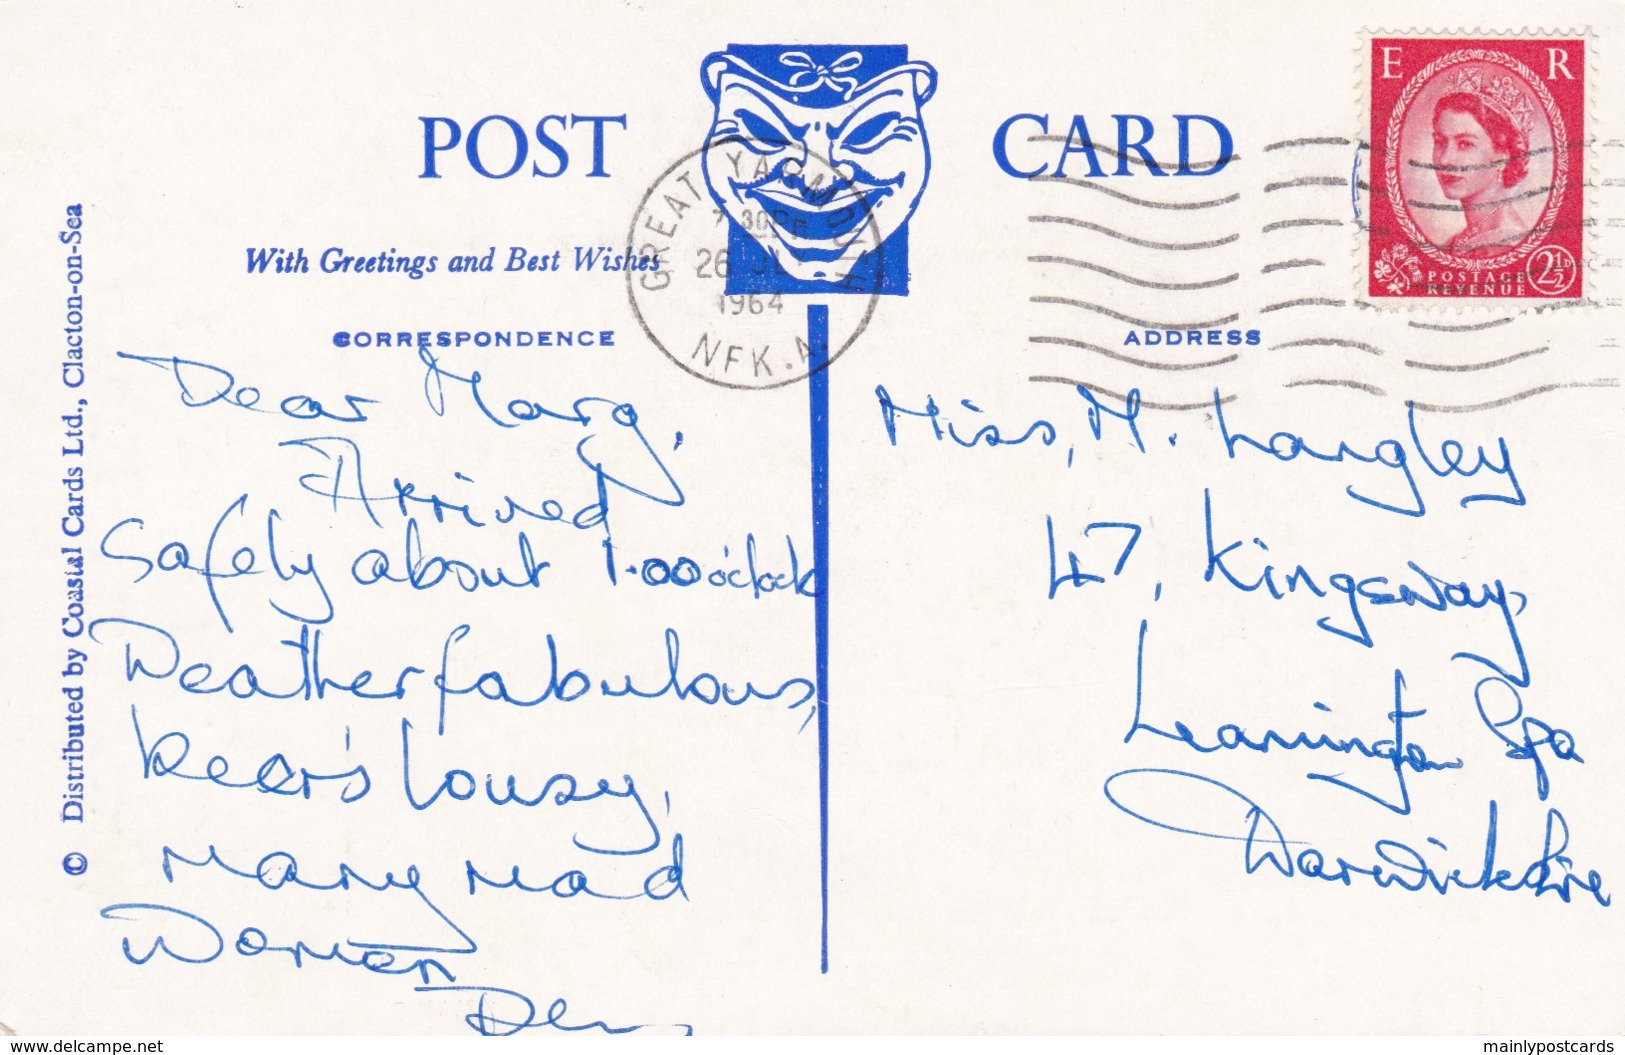 POST CARD
With Greetings and Best Wishes
CORRESPONDENCE
ADDRESS
© Distributed by Coastal Cards Ltd., Clacton-on-Sea
GREAT YARMOUTH
26 JLY
1964
NFK.A.
E R
POSTAGE
REVENUE
2½D
Dear Marg,
Arrived
Safely about 1.00 o'clock
Weather fabulous,
beer's lousy,
many mad
Women
Miss, M. Langley
47, Kingsway,
Leamington Spa
Warwickshire
www.delcampe.net
mainlypostcards